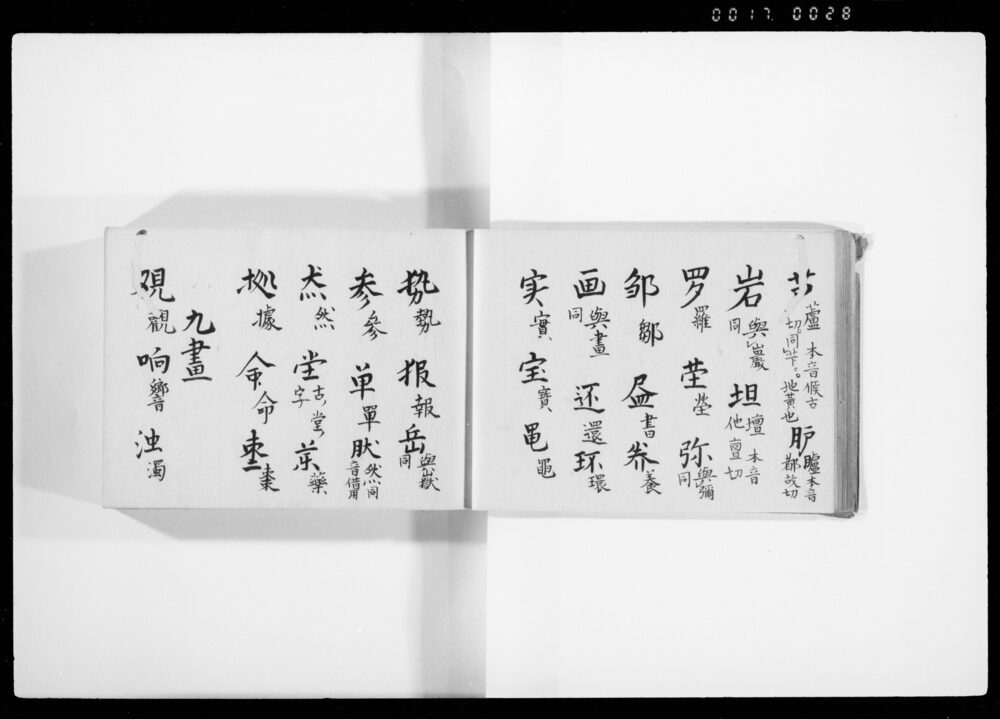 0017 0028
芐 蘆 本音候古切同芐。地黄也 胪 臚本音鄰故切
岩 與巖同 坦 壇 本音他亶切
罗 羅 茔 塋 弥 與彌同
邹 鄒 书
画 與畫同 还 還 环 環
实 實 宝 寶 黾 黽
势 勢 报 報 岳 與嶽同
参 參 单 單 肰 然同音借用
然 坣 古堂字 薬 藥
拠 據 命 枣 棗
九畫
覌 觀 响 響 浊 濁